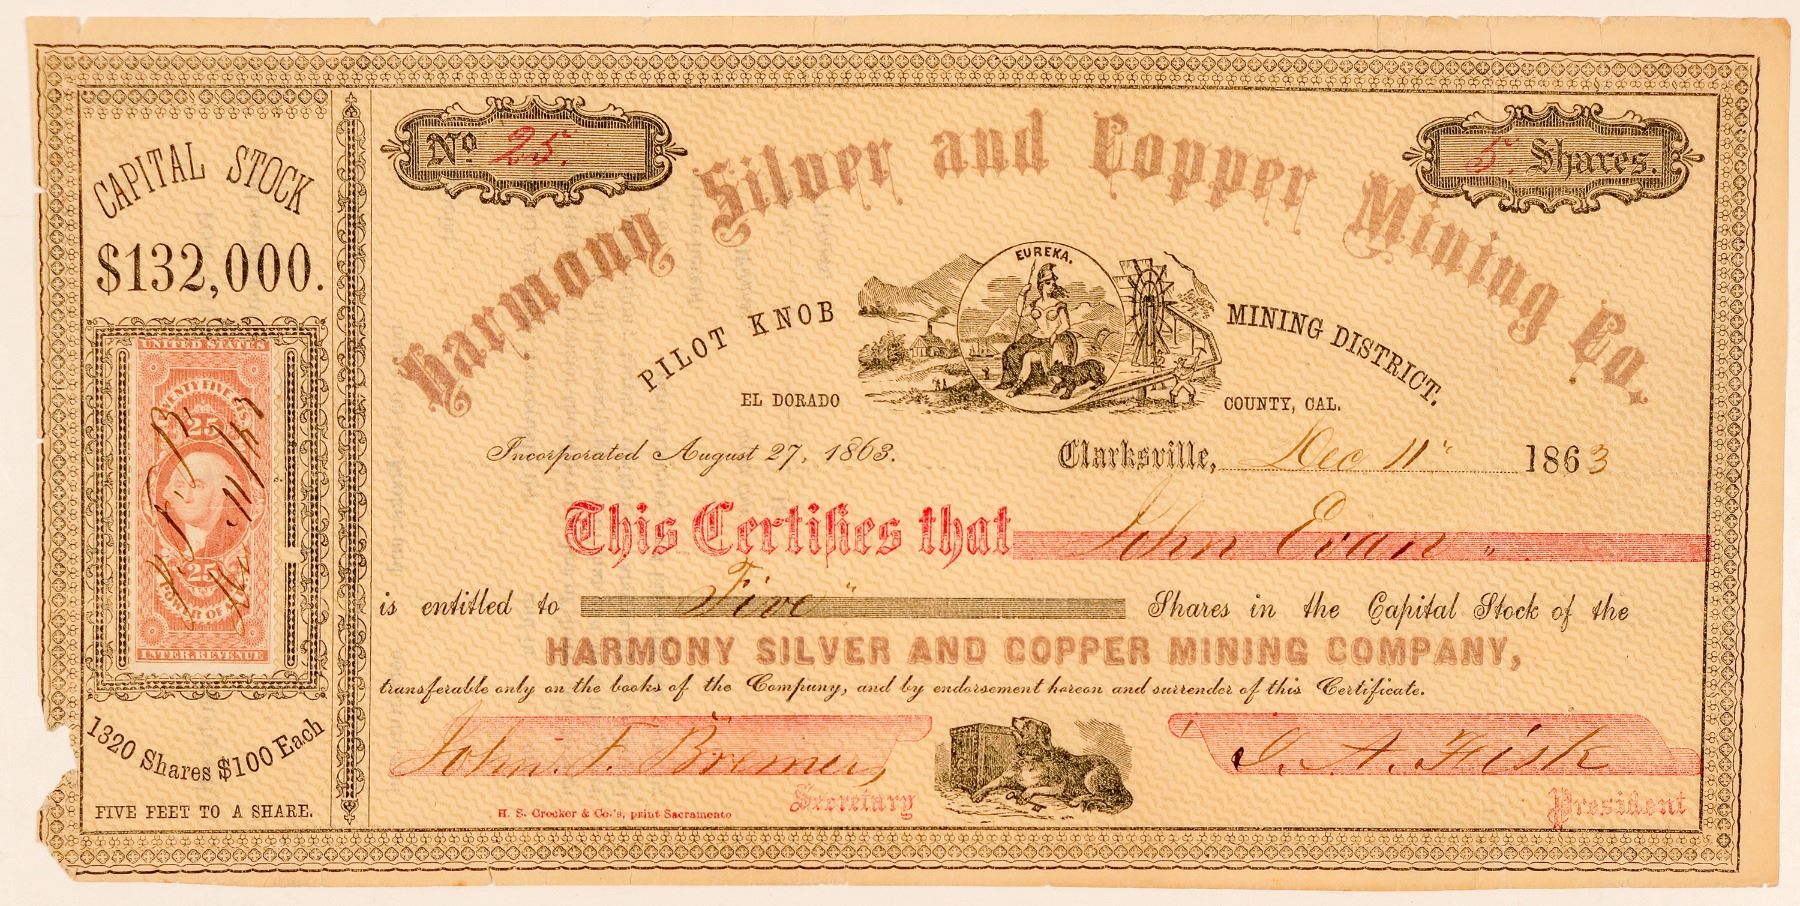 CAPITAL STOCK
$132,000.
UNITED STATES
TWENTY FIVE CTS
25
25
POWER OF
INTER. REVENUE
1320 Shares $100 Each
FIVE FEET TO A SHARE.
No 25.
5 Shares.
Harmony Silver and Copper Mining Co.
EUREKA.
PILOT KNOB MINING DISTRICT.
EL DORADO COUNTY, CAL.
Incorporated August 27, 1863.
Clarksville, Dec 11" 1863
This Certifies that John Evan "
is entitled to Five " Shares in the Capital Stock of the
HARMONY SILVER AND COPPER MINING COMPANY,
transferable only on the books of the Company, and by endorsement hereon and surrender of this Certificate.
John. F. Bremer,
Secretary
H. S. Crocker & Co.'s, print Sacramento
I. A. Fisk
President